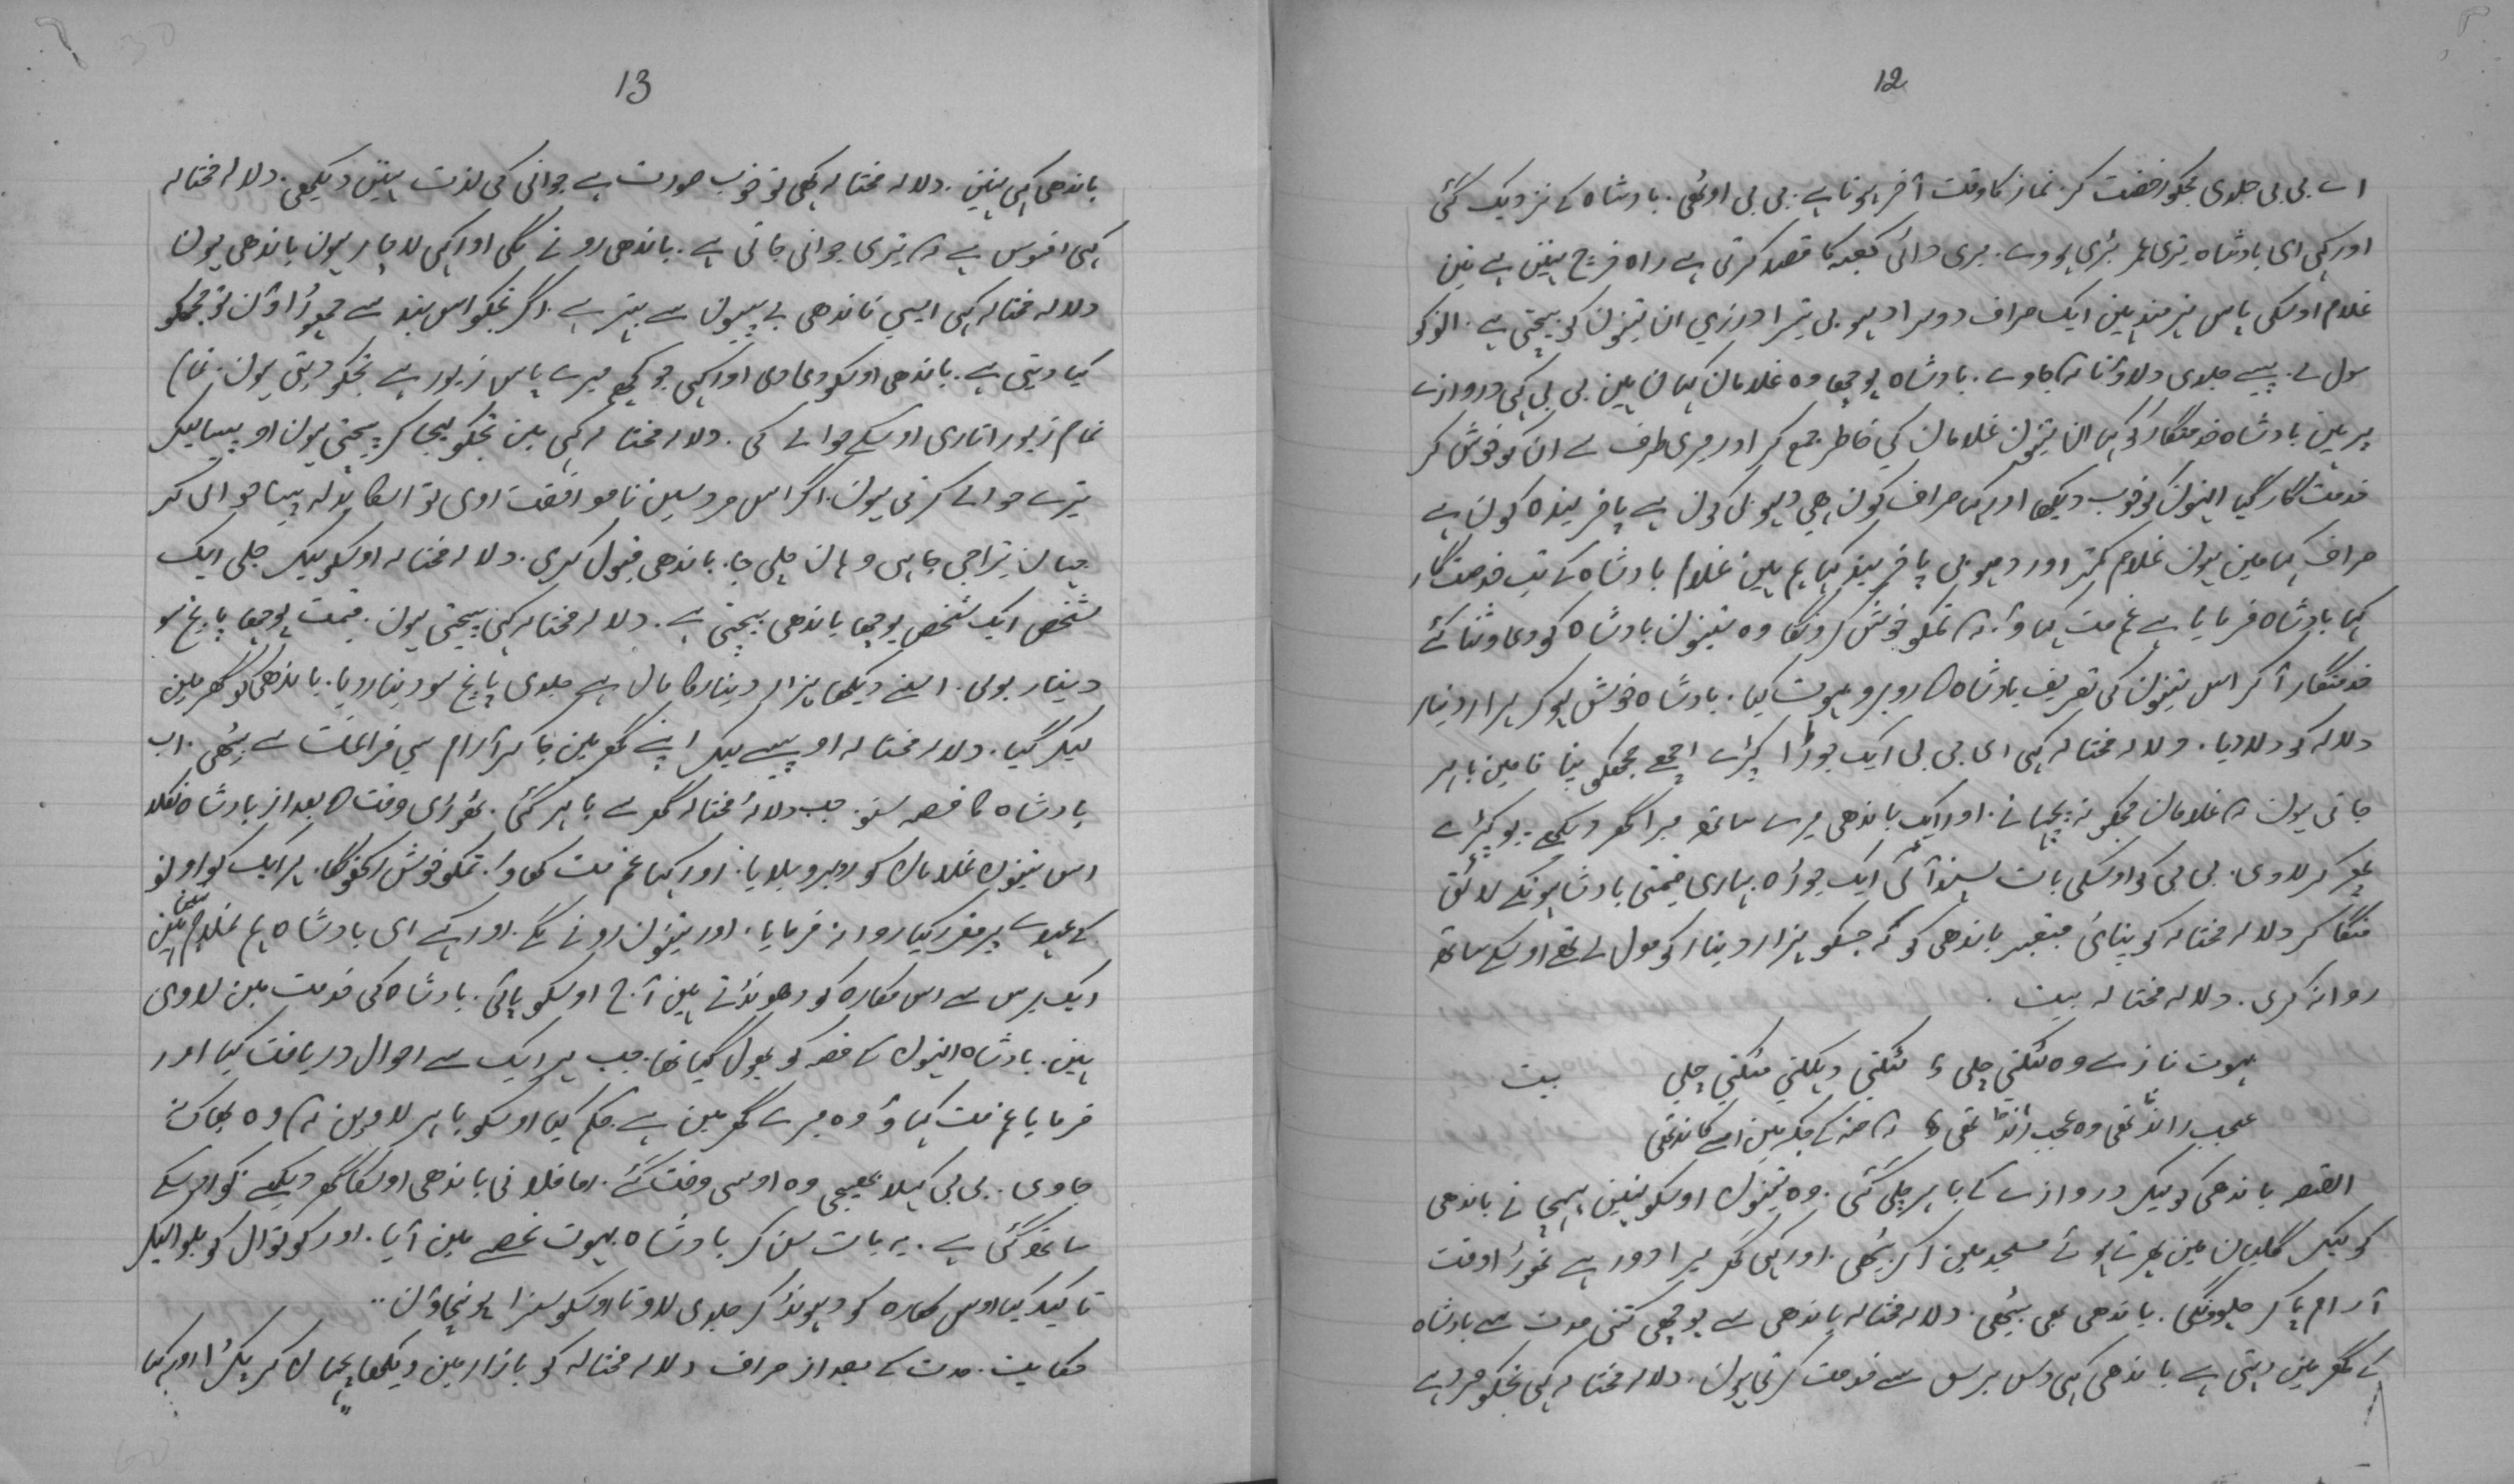 12
اے بی بی جلدی مجکو رخصت کر. نماز کا وقت آخر ہوتا ہے. بی بی اوٹھی. بادشاہ کے نزدیک گئی
اور کہی ای بادشاہ تیری عمر بڑی ہووے. میری دائی کعبہ کا قصد کرتی ہے راہ خرچ نہین ہے تین
غلام اوسکی پاس ہنرمند ہین ایک صراف دوسرا دہوبی تیسرا درزی ان تینون کو بیچتی ہے. انوکو
مول لے. پیسے جلدی دلاؤ تا کہ جاوے. بادشاہ پوچھا وہ غلامان کہان ہین بی بی کہی دروازے
پر ہین بادشاہ خدمتگار کو کہا ان تینون غلامان کی خاطر جمع کر اور میری طرف سے ان کو خوش کر
خدمتگار گیا انہون کو خوب دیکھا اور کہا صراف کون ہے دہوبی کون ہے پافریندہ کون ہے
صراف کہا مین ہون غلام کمتر اور دہوبی پافریند کہا ہم ہین غلام بادشاہ کے تب خدمتگار
کہا بادشاہ فرمایا ہے غم مت کہاؤ. کہ تمکو خوش کرونگا وہ تینون بادشاہ کو دعا و ثنا کئے
خدمتگار آ کر اس تینون کی تعریف بادشاہ کا روبرو بہوت کیا. بادشاہ خوش ہو کر ہزار دینار
دلالہ کو دلادیا. دلالہ مختالہ کہی ای بی بی ایک جوڑا کپڑے اچھے مجھکو پنا تا مین باہر
جاتی ہون کہ غلامان مجکو نہ پچہانے. اور ایک باندھی میرے ساتھ میرا گھر دیکھے. یو کپڑے
پھر کر لادی. بی بی کو اوسکی بات پسند آئی ایک جوڑہ بہاری قیمتی بادشاہونکے لائق
منگا کر دلالہ مختالہ کو پنائی معتبر باندھی کو کہ جسکو ہزار دینار کو مول لے تھے اوسکے ساتھ
روانہ کری. دلالہ مختالہ بیت .
بہوت ناز سے وہ مٹکتی چلی ؛ لٹکتی دہلکتی مٹکتی چلی بیت
عجب رانڈ تھی وہ عجب رانڈ تھی ؛ کہ جنہ کے جکر مین اسے کاند تھی
القصہ باندھی کو لیکر دروازے کے باہر چلی گئی. وہ تینون اوسکو نہین پہچانے باندھی
کو لیکر گلیان مین پھرتے ہوئے مسجد مین آ کر بیٹھی. اور کہی گھر میرا دور ہے تھوڑا وقت
آرام پا کر چلونگی. باندھی بھی بیٹھی. دلالہ مختالہ باندھی سے پوچھی کتنی مدت سے بادشاہ
کے گھر مین رہتی ہے باندھی کہی دس برس سے خدمت کرتی ہون. دلالہ مختالہ کہی تجکو مرد ہے
13
باندھی کہی نہین. دلالہ مختالہ کہی تو خوب صورت ہے جوانی کی لذت نہین دیکھی. دلالہ مختالہ
کہی افسوس ہے کہ تیری جوانی جاتی ہے. باندھی رونے لگی اور کہی لاچار ہون باندھی ہون
دلالہ مختالہ کہی ایسی باندھی بے پیسون سے بہتر ہے. اگر تجکو اس بند سے چھوڑاؤن تو مجھکو
کیا دیتی ہے. باندھی اوسکو دعا دی اور کہی جو کچھ میرے پاس زیور ہے تجکو دیتی ہون. تمام
تمام زیور اتاری اوسکے حوالے کی. دلالہ مختالہ کہی مین تجکو لیجا کر بیچتی ہون او پیسا لیکر
تیرے حوالے کرتی ہون. اگر اس مرد سین ناموافقت اوی تو اسکا بدلہ پیسا حوالی کر
جہان تیرا جی چاہی وہان چلی جا. باندھی قبول کری. دلالہ مختالہ اوسکو لیکر چلی ایک
شخص ایک شخص پوچھا باندھی بیچتی ہے. دلالہ مختالہ کہی بیچتی ہون. قیمت پوچھا پانچ سو
دینار بولی. اسنے دیکھا ہزار دینار کا مال ہے جلدی پانچ سو دینار دیا. باندھی کو گھر مین
لیکر گیا. دلالہ مختالہ او پیسے لیکر اپنے گھر مین جا کر آرام سی فراغت سے بیٹھی. اب
بادشاہ کا قصہ سنو. جب دلالہ مختالہ گھر سے باہر گئی. تھوڑی وقت کا بعد از بادشاہ نکلا
اس تینون غلامان کو روبرو بلایا. اور کہا غم مت کھاؤ. تمکو خوش رکھونگا. ہر ایک کو اونو
کے عہدے پر مقرر کیا روانہ فرمایا. اور تینون رونے لگے. اور کہے ای بادشاہ ہم غلام نہین ہین
ایک برس سے اس مکارہ کو دھونڈتے ہین آج اوسکو پائی. بادشاہ کی خدمت مین لاوی
ہین. بادشاہ انہون کے قصہ کو بھول گیا تھا. جب ہر ایک سے احوال دریافت کیا اور
فرمایا غم مت کہاؤ وہ میرے گھر مین ہے. حکم کیا اوسکو باہر لاوین کہ وہ بھاگ نہ
جاوی. بی بی کہلا بھیجی وہ اوسی وقت گئے. اما فلانی باندھی اوسکا گھر دیکھنے کو اوسکے
ساتھ گئی ہے. یہ بات سن کر بادشاہ بہوت غصے مین آیا. اور کوتوال کو بلوا لیکر
تاکید کیا اوس مکارہ کو دہونڈ کر جلدی لاو تا اوسکو سزا پونہچاؤن..
حکایت. مدت کے بعد از صراف دلالہ مختالہ کو بازار مین دیکھا پچہان کر پکڑا اور کہا